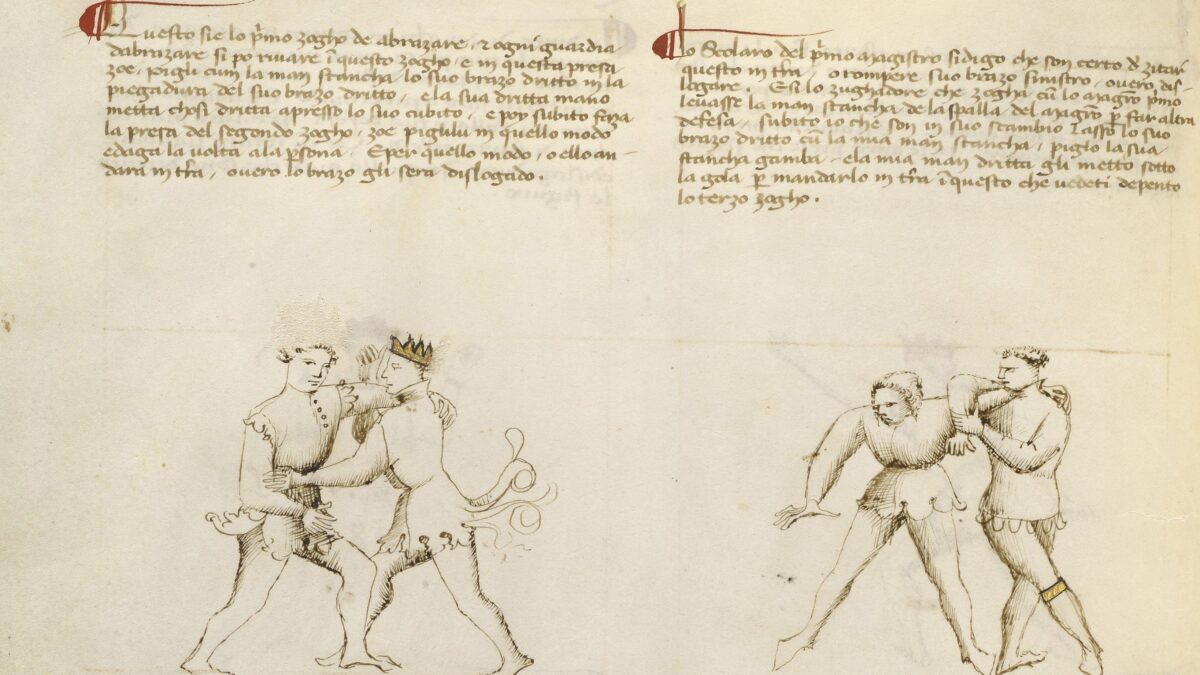 Questo sie lo p'mo zogho de abrazare, & ogni guardia
dabrazare si po rivare i questo zogho, e in questa presa
zoe, pigli cum la man stancha lo suo brazo dritto in la
piegadura del suo brazo dritto, e la sua dritta mano
metta chosi dritta apresso lo suo cubito, e poy subito faza
la presa del segondo zogho, zoe piglilu in quello modo
e daga la volta a la p'sona. E per quello modo, o ello an-
dara in t'ra, overo lo brazo gli sera dislogado.
Lo Scolaro del p'mo magistro si digo che son certo d' zitar
questo in t'ra, o rompere suo brazo sinistro, overo dis-
logare. E si lo zughadore che zogha cu lo magro p'mo
levasse la man stancha de la spalla del magro p' far altra
defesa, subito io che son in suo scambio lasso lo suo
brazo dritto cu la mia man stancha, piglo la sua
stancha gamba, e la mia man dritta gli metto sotto
la gola p' mandarlo in t'ra i questo che vedeti depento
lo terzo zogho.